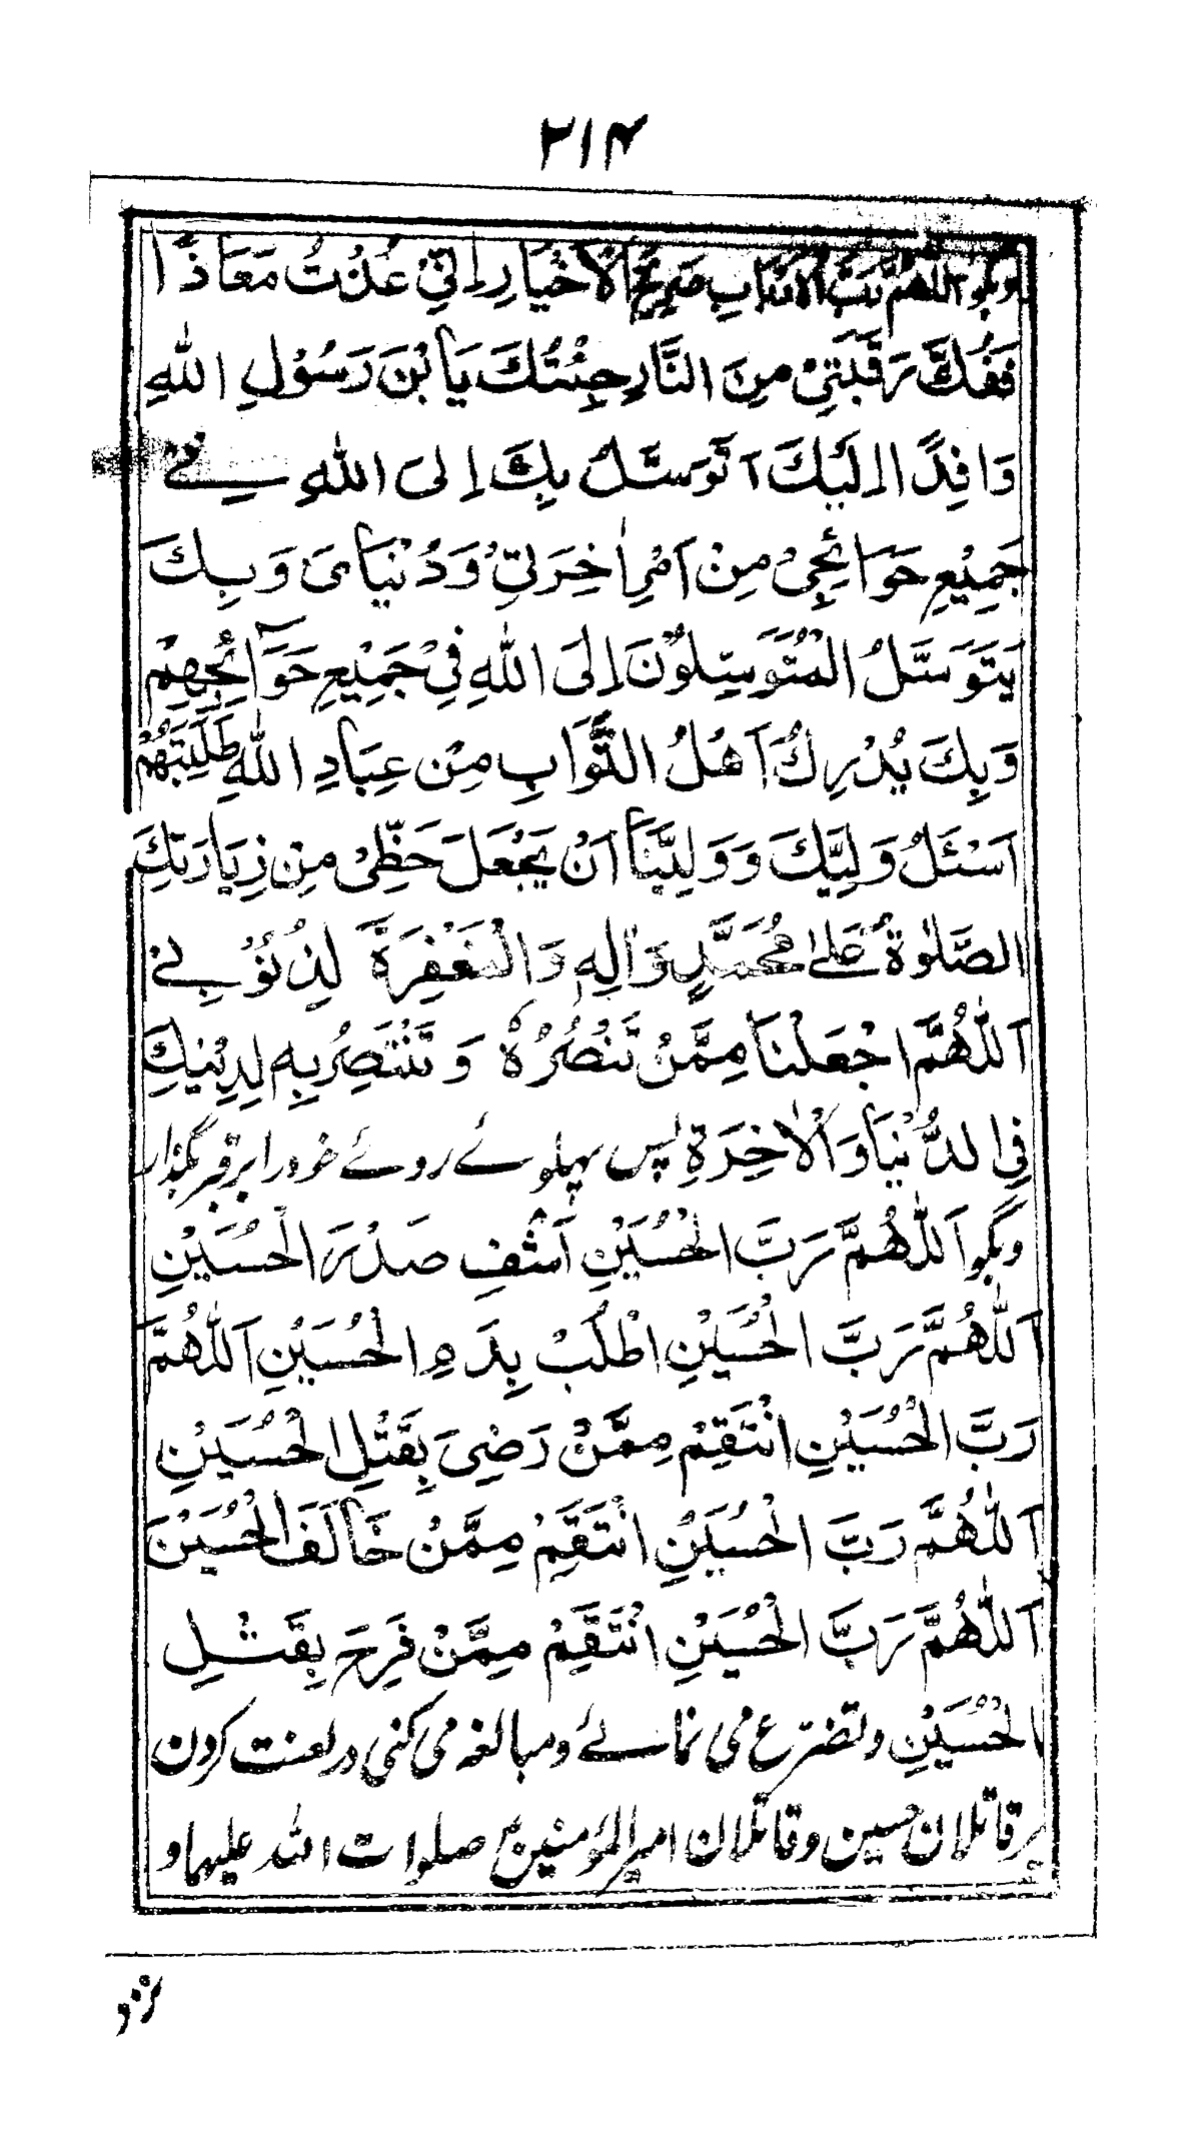 ۲۱۴
وبگو اَللّٰهُمَّ رَبَّ الْاَرْبَابِ صَرِيْخَ الْاَخْيَارِ اِنِّيْ عُذْتُ مَعَاذًا
فَفُكَّ رَقَبَتِيْ مِنَ النَّارِ جِئْتُكَ يَا بْنَ رَسُوْلِ اللهِ
وَافِدًا اِلَيْكَ اَتَوَسَّلُ بِكَ اِلَى اللهِ فِيْ
جَمِيْعِ حَوَائِجِيْ مِنْ اَمْرِ اٰخِرَتِيْ وَدُنْيَايَ وَبِكَ
يَتَوَسَّلُ الْمُتَوَسِّلُوْنَ اِلَى اللهِ فِيْ جَمِيْعِ حَوَآئِجِهِمْ
وَبِكَ يُدْرِكُ اَهْلُ الثَّوَابِ مِنْ عِبَادِ اللهِ طَلِبَتَهُمْ
اَسْئَلُ وَلِيَّكَ وَوَلِيَّنَا اَنْ يَجْعَلَ حَظِّيْ مِنْ زِيَارَتِكَ
الصَّلٰوةَ عَلٰى مُحَمَّدٍ وَاٰلِهِ وَالْمَغْفِرَةَ لِذُنُوْبِيْ
اَللّٰهُمَّ اجْعَلْنَا مِمَّنْ تَنْصُرُهٗ وَتَنْتَصِرُ بِهِ لِدِيْنِكَ
فِي الدُّنْيَا وَالْاٰخِرَةِ پس پهلوئے روئے خود را بر قبر بگذار
وبگو اَللّٰهُمَّ رَبَّ الْحُسَيْنِ اَشْفِ صَدْرَ الْحُسَيْنِ
اَللّٰهُمَّ رَبَّ الْحُسَيْنِ اطْلُبْ بِدَمِ الْحُسَيْنِ اَللّٰهُمَّ
رَبَّ الْحُسَيْنِ انْتَقِمْ مِمَّنْ رَضِيَ بِقَتْلِ الْحُسَيْنِ
اَللّٰهُمَّ رَبَّ الْحُسَيْنِ انْتَقِمْ مِمَّنْ خَالَفَ الْحُسَيْنَ
اَللّٰهُمَّ رَبَّ الْحُسَيْنِ انْتَقِمْ مِمَّنْ فَرِحَ بِقَتْلِ
الْحُسَيْنِ وتضرّع می نمائے و مبالغه می کنی در لعنت کردن
بر قاتلان حسین و قاتلان امیرالمؤمنین صلوات الله علیهما و
نزد